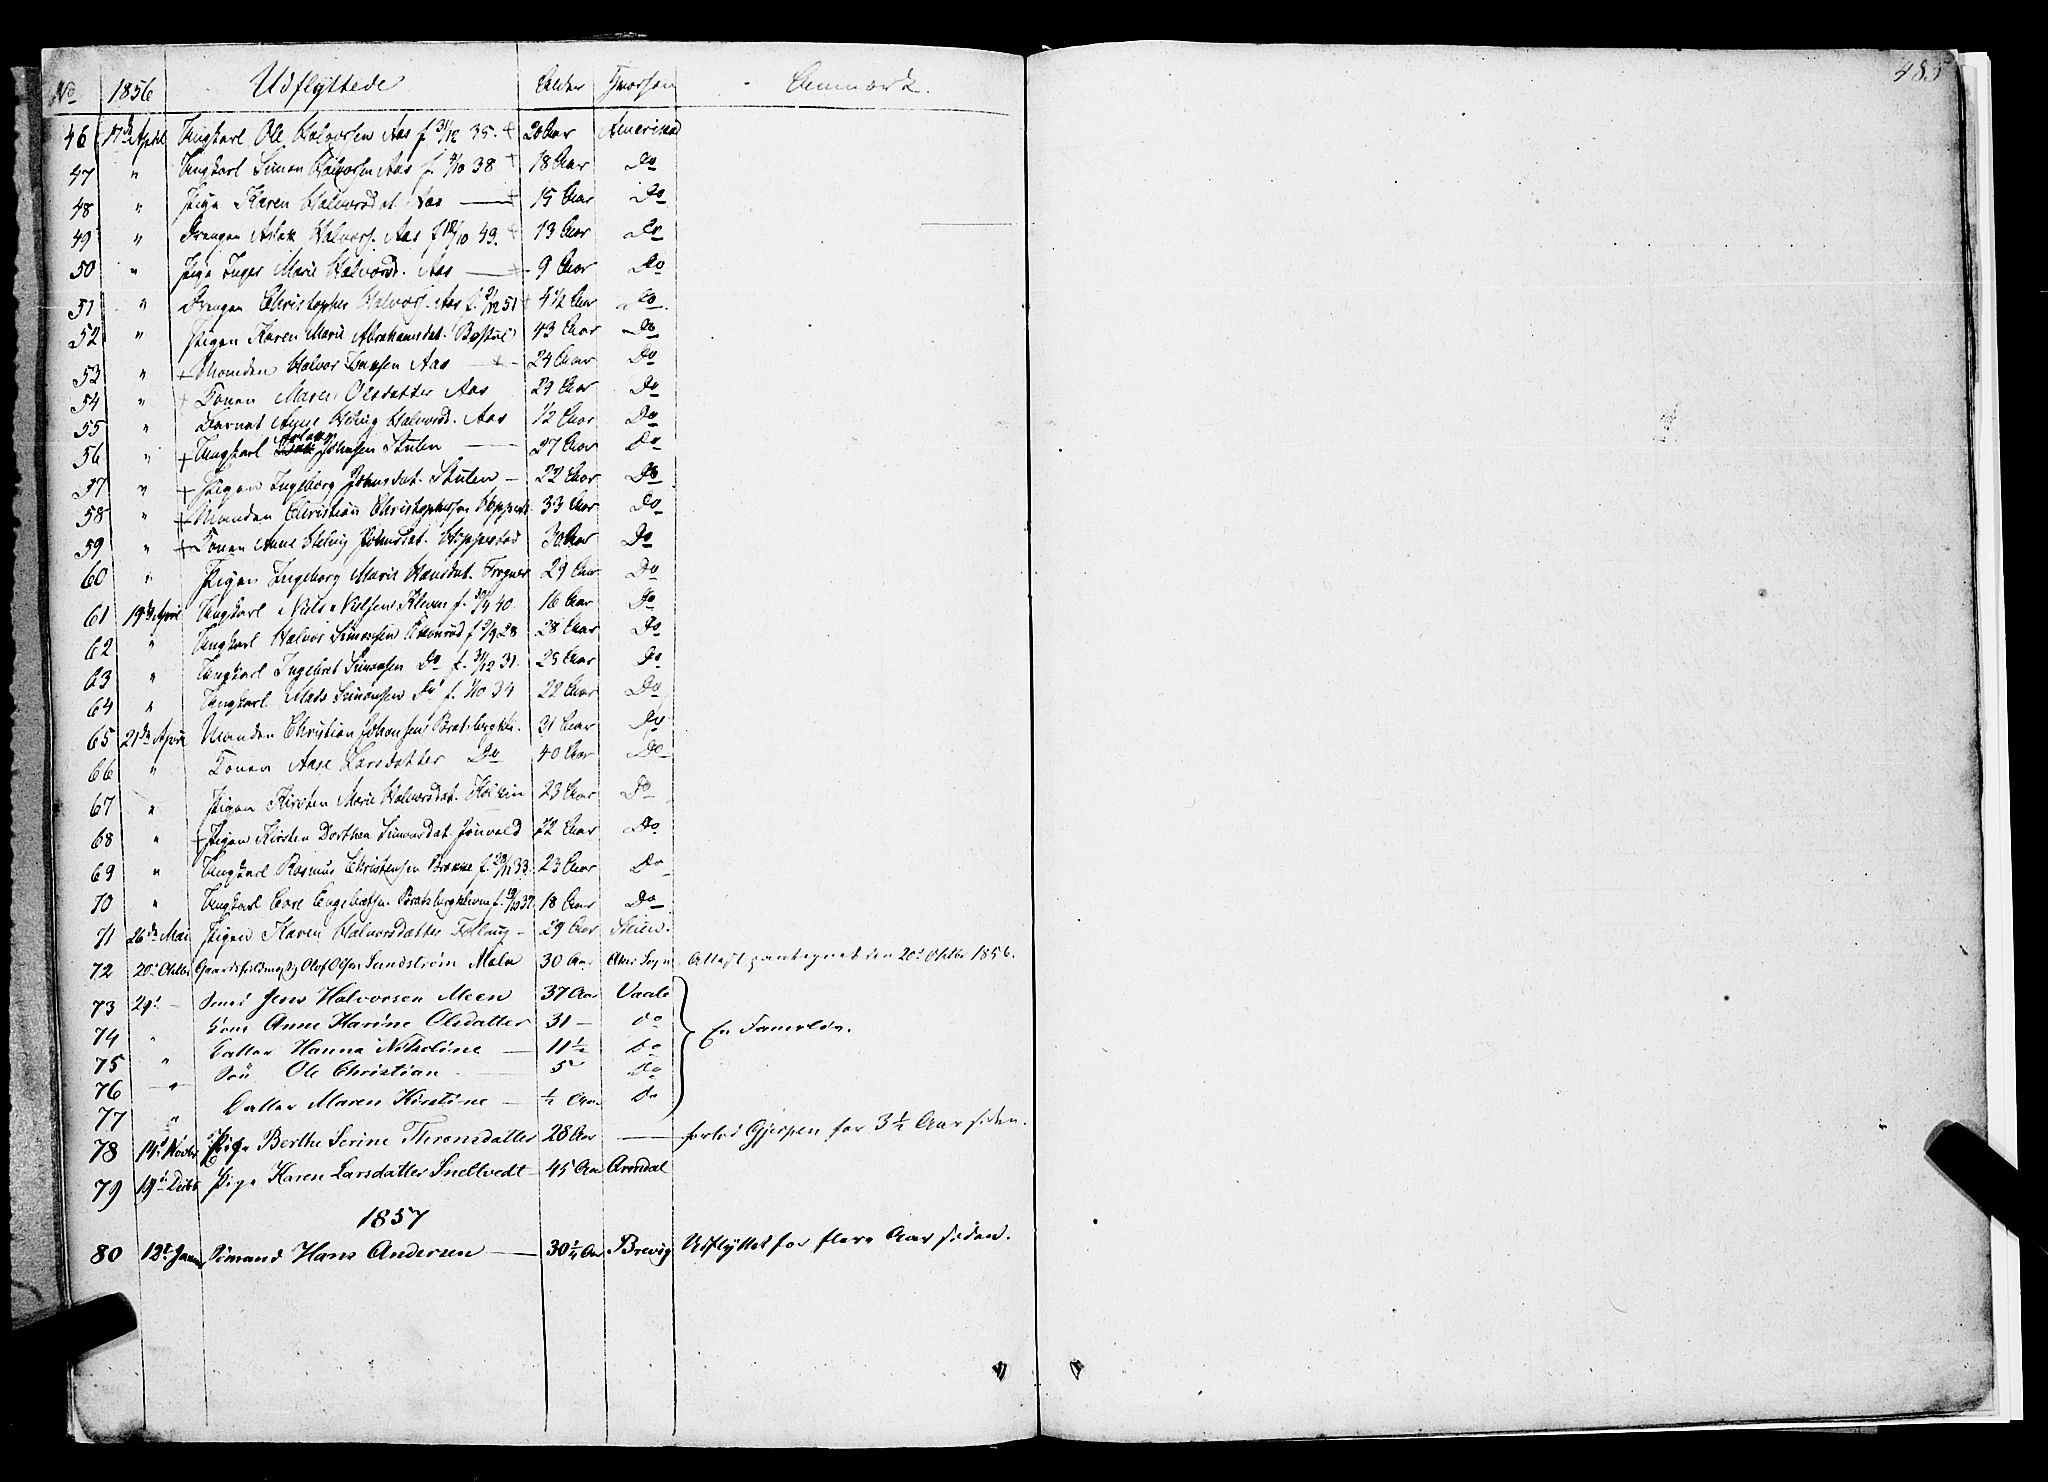 485
No 1856 Udflyttede Alder Hvorhen Anmærk.
46 17de April Ungkarl Ole Halvorsen Aas f 31/12 35. + 20 Aar Amerika
47 " Ungkarl Simon Halvorsen Aas f. 9/10 38 + 18 Aar Do
48 " Pige Karen Halvorsdat. Aas — + 15 Aar Do
49 " Drengen Aslak Halvors. Aas f 18/10 43. + 13 Aar Do
50 " Pige Inger Marie Halvorsd. Aas — + 9 Aar Do
51 " Drengen Christopher Halvors. Aas f. 9/12 51 + 4 1/2 Aar Do
52 " Pigen Karen Marie Abrahamsdat. Bøstul 43 Aar Do
53 " + Manden Halvor Isaksen Aas + - 24 Aar Do
54 " + Konen Maren Olsdatter Aas 29 Aar Do
55 " Barnet Anne Helvig Halvorsd. Aas 1/2 Aar Do
56 " + Ungkarl Johnsen Stulen — 27 Aar Do
57 " + Pigen Ingeborg Johnsdat. Stulen — 22 Aar Do
58 " + Manden Christian Christophersen Hoppest. 33 Aar Do
59 " + Konen Anne Helvig Johnsdat. Hoppestad 30 Aar Do
60 " Pigen Ingeborg Marie Hansdat. Frogner 29 Aar Do
61 19de April Ungkarl Niels Nielsen Kleven f. 30/4 40. 16 Aar Do
62 " Ungkarl Halvor Simonsen f 9/9 28 28 Aar Do
63 " Ungkarl Ingebret Simonsen Do f. 31/12 31. 25 Aar Do
64 " Ungkarl Mads Simonsen Do f. 1/10 34 22 Aar Do
65 21de April Manden Christian Johansen Bratsbergkl. 31 Aar Do
66 " Konen Aase Larsdatter Do 40 Aar Do
67 " Pigen Kirsten Marie Halvorsdat. 23 Aar Do
68 " + Pigen Kirsten Dorthea Simonsdat. Jønvald 22 Aar Do
69 " Ungkarl Rasmus Christensen f. 29/11 33. 23 Aar Do
70 " Ungkarl Carl Engebretsen Bratsbergkleven f. 19/10 37. 18 Aar Do
71 26de Mai Pigen Karen Halvorsdatter — 29 Aar Skien.
72 20d Oktbr Olof Olsen Sundstrøm Mæla 30 Aar Aker Sogn Attest paategnet den 20d Oktbr 1856.
73 29d — Smed Jens Halvorsen Meen 37 Aar Vaale
74 " Kone Anne Karine Olsdatter 31 — do
75 " Datter Hanna Nikoline — 11 1/2 Do } En Familie.
76 — " Søn Ole Christian — 5 do
77 " Datter Maren Kirstine — 1/2 Aar Do
78 14d Novbr Pige Berthe Serine Thronsdatter 28 Aar — forlod Gjerpen for 3 1/2 Aar siden.
79 19d Decbr Pige Karen Larsdatter Snellvedt 45 Aar Arendal
1857
80 12t Janr Sømand Hans Andersen — 30 1/4 Aar Brevig Udflyttet for flere Aar siden.